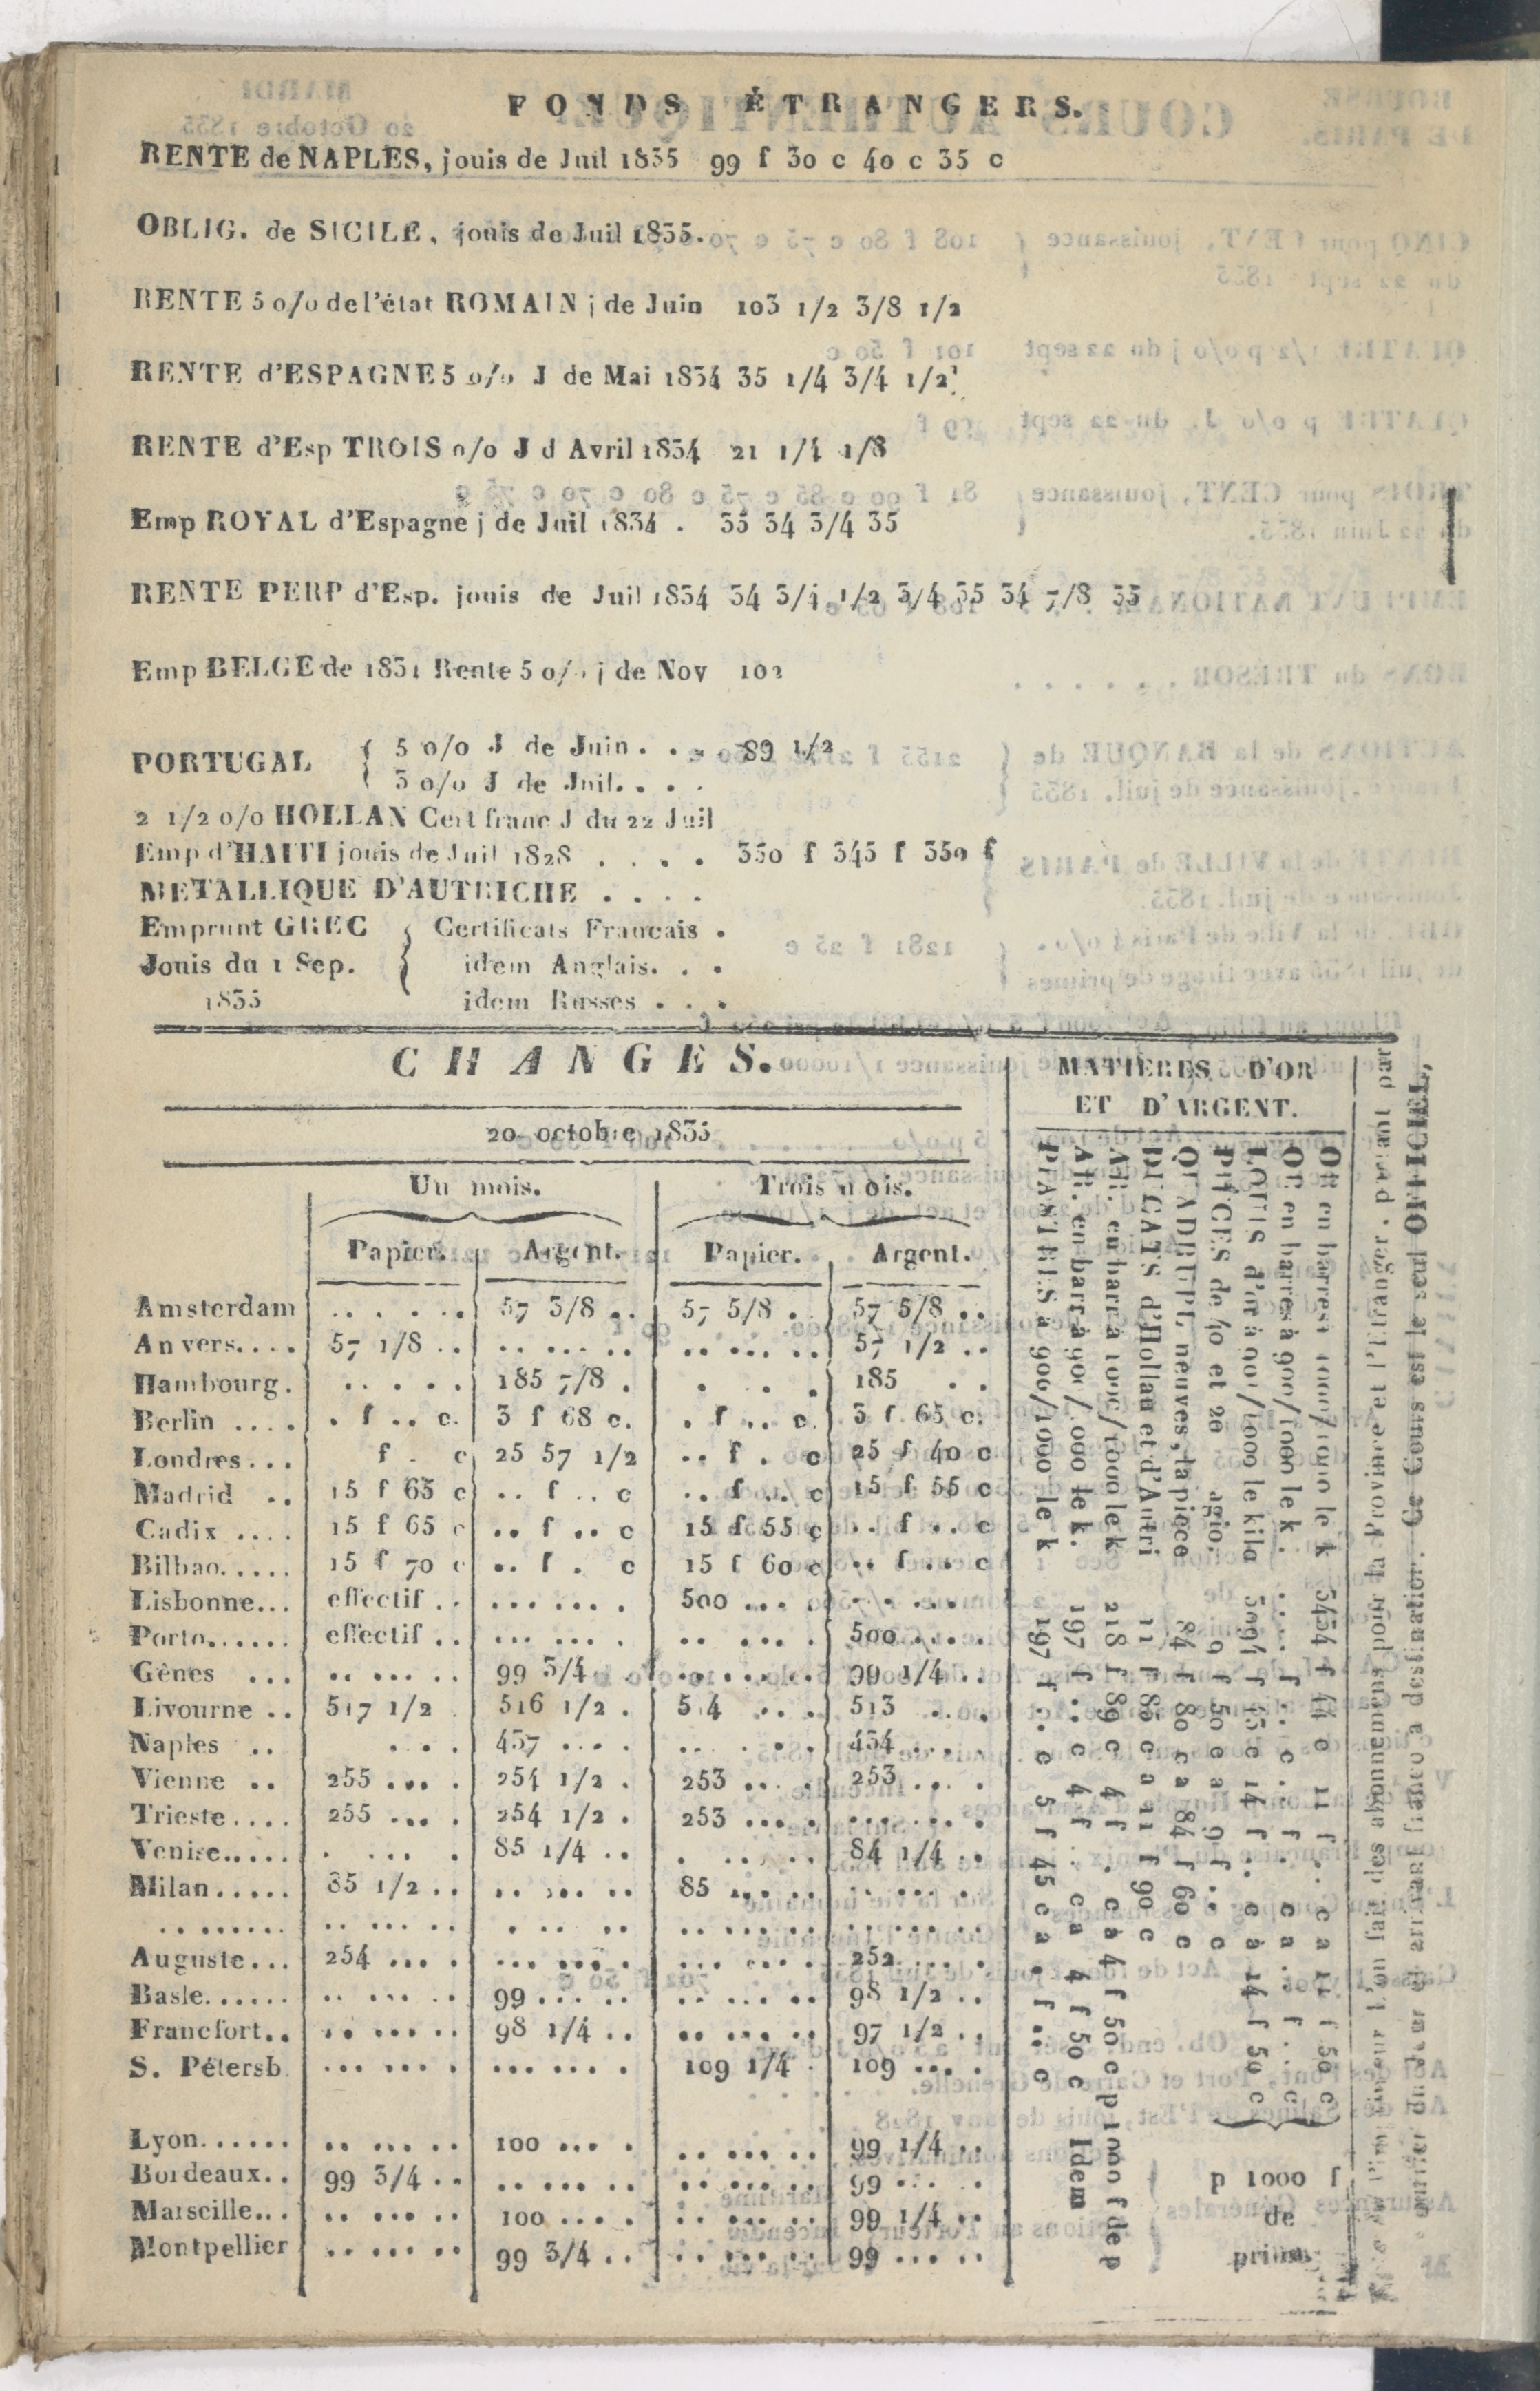 FONDS ÉTRANGERS.
RENTE de NAPLES, jouis de Juil 1835 99 f 30 c 40 c 35 c
OBLIG. de SICILE, jouis de Juil 1835.
RENTE 5 o/o de l'état ROMAIN j de Juin 103 1/2 3/8 1/2
RENTE d'ESPAGNE 5 o/o J de Mai 1834 35 1/4 3/4 1/2
RENTE d'Esp TROIS o/o J d Avril 1834 21 1/4 1/8
Emp ROYAL d'Espagne j de Juil 1834 . 35 34 3/4 35
RENTE PERP d'Esp. jouis de Juil 1834 34 3/4 1/2 3/4 35 34 7/8 35
Emp BELGE de 1831 Rente 5 o/o j de Nov 102
PORTUGAL { 5 o/o J de Juin . . . 89 1/2
3 o/o J de Juil. . . .
2 1/2 o/o HOLLAN Cert franc J du 22 Juil
Emp d'HAITI jouis de Juil 1828 . . . . 350 f 345 f 350 f
METALLIQUE D'AUTRICHE . . . .
Emprunt GREC { Certificats Francais .
Jouis du 1 Sep. idem Anglais. . .
1835 idem Russes . . .
CHANGES.
20 octobre 1835
Un mois. Trois mois.
Papier. Argent. Papier. Argent.
Amsterdam .. . . .. 57 3/8 .. 57 5/8 . 57 5/8 ..
Anvers.... 57 1/8 .. .. ... .. .. ... .. 57 1/2 ..
Hambourg. .. . . . 185 7/8 . . . . 185 . .
Berlin .... . f .. c. 3 f 68 c. . f .. c. 3 f 65 c.
Londres... f . c 25 57 1/2 .. f . c 25 f 40 c
Madrid .. 15 f 65 c .. f .. c .. f .. c 15 f 55 c
Cadix .... 15 f 65 c .. f .. c 15 f 55 c .. f .. c
Bilbao..... 15 f 70 c .. f . c 15 f 60 c .. f .. c
Lisbonne... effectif .. ... ... . 500 ... . .. ... .
Porto...... effectif .. ... ... . .. ... . 500 ... .
Gènes ... .. ... .. 99 3/4 .. ... .. 99 1/4 ..
Livourne .. 517 1/2 . 516 1/2 . 514 ... . 513 ... .
Naples .. ... 457 ... . .. ... . 454 ... .
Vienne .. 255 ... . 254 1/2 . 253 ... . 253 ... .
Trieste.... 255 ... . 254 1/2 . 253 ... . ... ... .
Venise..... . ... . 85 1/4 .. . ... .. 84 1/4 ..
Milan..... 85 1/2 .. .. ... .. 85 ... .. .. ... .
....... .. ... .. . .. .. .. ... .. .. ... ..
Auguste... 254 ... . ... ... . ... ... . 252 ... .
Basle...... .. ... .. 99 ... .. .. ... .. 98 1/2 ..
Francfort.. .. ... .. 98 1/4 .. .. ... .. 97 1/2 ..
S. Pétersb ... ... . ... ... . 109 1/4 . 109 ... .
Lyon...... .. ... .. 100 ... . .. ... .. 99 1/4 ..
Bordeaux.. 99 3/4 .. .. ... .. .. ... .. 99 ... .
Marseille... .. ... .. 100 ... . .. ... .. 99 1/4 ..
Montpellier .. ... .. 99 3/4 .. .. ... .. 99 ... ..
MATIÈRES D'OR
ET D'ARGENT.
OR en barres à 1000/1000 le k 3434 f 44 c 11 f .. c a 11 f 50 c
OR en barres à 900/1000 le k . .... f .. c . f . c a . f .. c
LOUIS d'or à 901/1000 le kilo 3091 f 45 c 14 f .. c à 14 f 50 c
PIÈCES de 40 et 20 agio. 9 f 50 c a 9 f .. c
QUADRUPL neuves, la pièce 84 f 80 c a 84 f 60 c
DUCATS d'Hollan et d'Autri 11 f 85 c a 11 f 90 c
AR. en barr à 1000/1000 le k 218 f 89 c 4 f . c à 4 f 50 c p 1000 f de p
AR. en barr à 900/1000 le k. 197 f .. c 4 f . c a 4 f 50 c Idem
PIASTRES à 900/1000 le k 197 f .. c 5 f 45 c a . f .. c
p 1000 f
de
prime
l'on fait des abonnemens pour la Province et l'Etranger, partant par
et arrivant franco a destination. Ce Cours est le seul OFFICIEL,